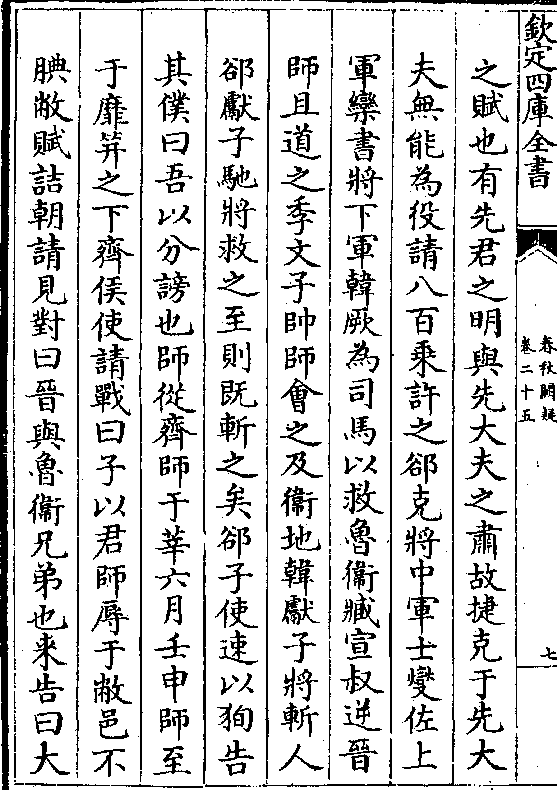 欽定四庫全書
春秋闕疑
卷二十五
七
之賦也有先君之明與先大夫之肅故捷克于先大
夫無能為役請八百乘許之郤克將中軍士燮佐上
軍欒書將下軍韓厥為司馬以救魯衞臧宣叔逆晉
師且道之季文子帥師會之及衞地韓獻子將斬人
郤獻子馳將救之至則既斬之矣郤子使速以狥告
其僕曰吾以分謗也師從齊師于莘六月壬申師至
于靡笄之下齊侯使請戰曰子以君師辱于敝邑不
腆敝賦詰朝請見對曰晉與魯衞兄弟也来告曰大